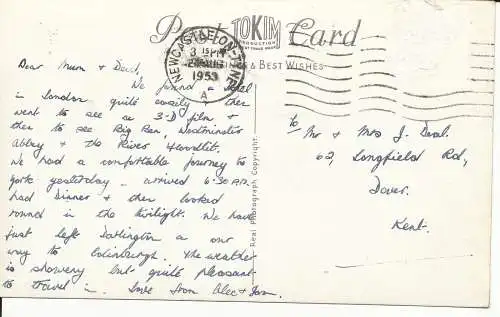 Post Card
TOKIM
PRODUCTION
& BEST WISHES
NEWCASTLE-ON-TYNE
3 15 PM
AUG
1953
A
Real Photograph Copyright.
Dear Mum & Dad,
We found
in London quite easily & then
went to see a 3-D film &
then to see Big Ben, Westminster
Abbey & the River floodlit.
We had a comfortable journey to
York yesterday - arrived 6.30 P.M.
had Dinner & then looked
round in the twilight. We have
just left Darlington & on our
way to Edinburgh. The weather
is showery but quite pleasant
to travel in. Love from Alec &
to
Mr & Mrs J. Deal.
62, Longfield Rd,
Dover.
Kent.